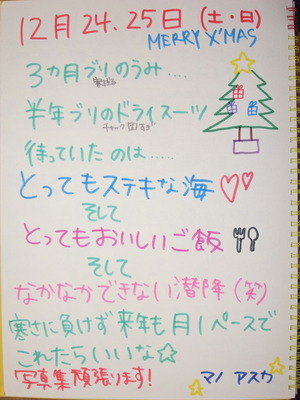 12月24.25日(土・日)
MERRY X'MAS
3ヵ月ブリのうみ.....
半年ブリのドライスーツ
待っていたのは.....
とってもステキな海♡♡
そして
とってもおいしいご飯
そして
なかなかできない潜降(笑)
寒さに負けず来年も月1ペースで
これたらいいな☆
写真集頑張ります!
マノ アスカ